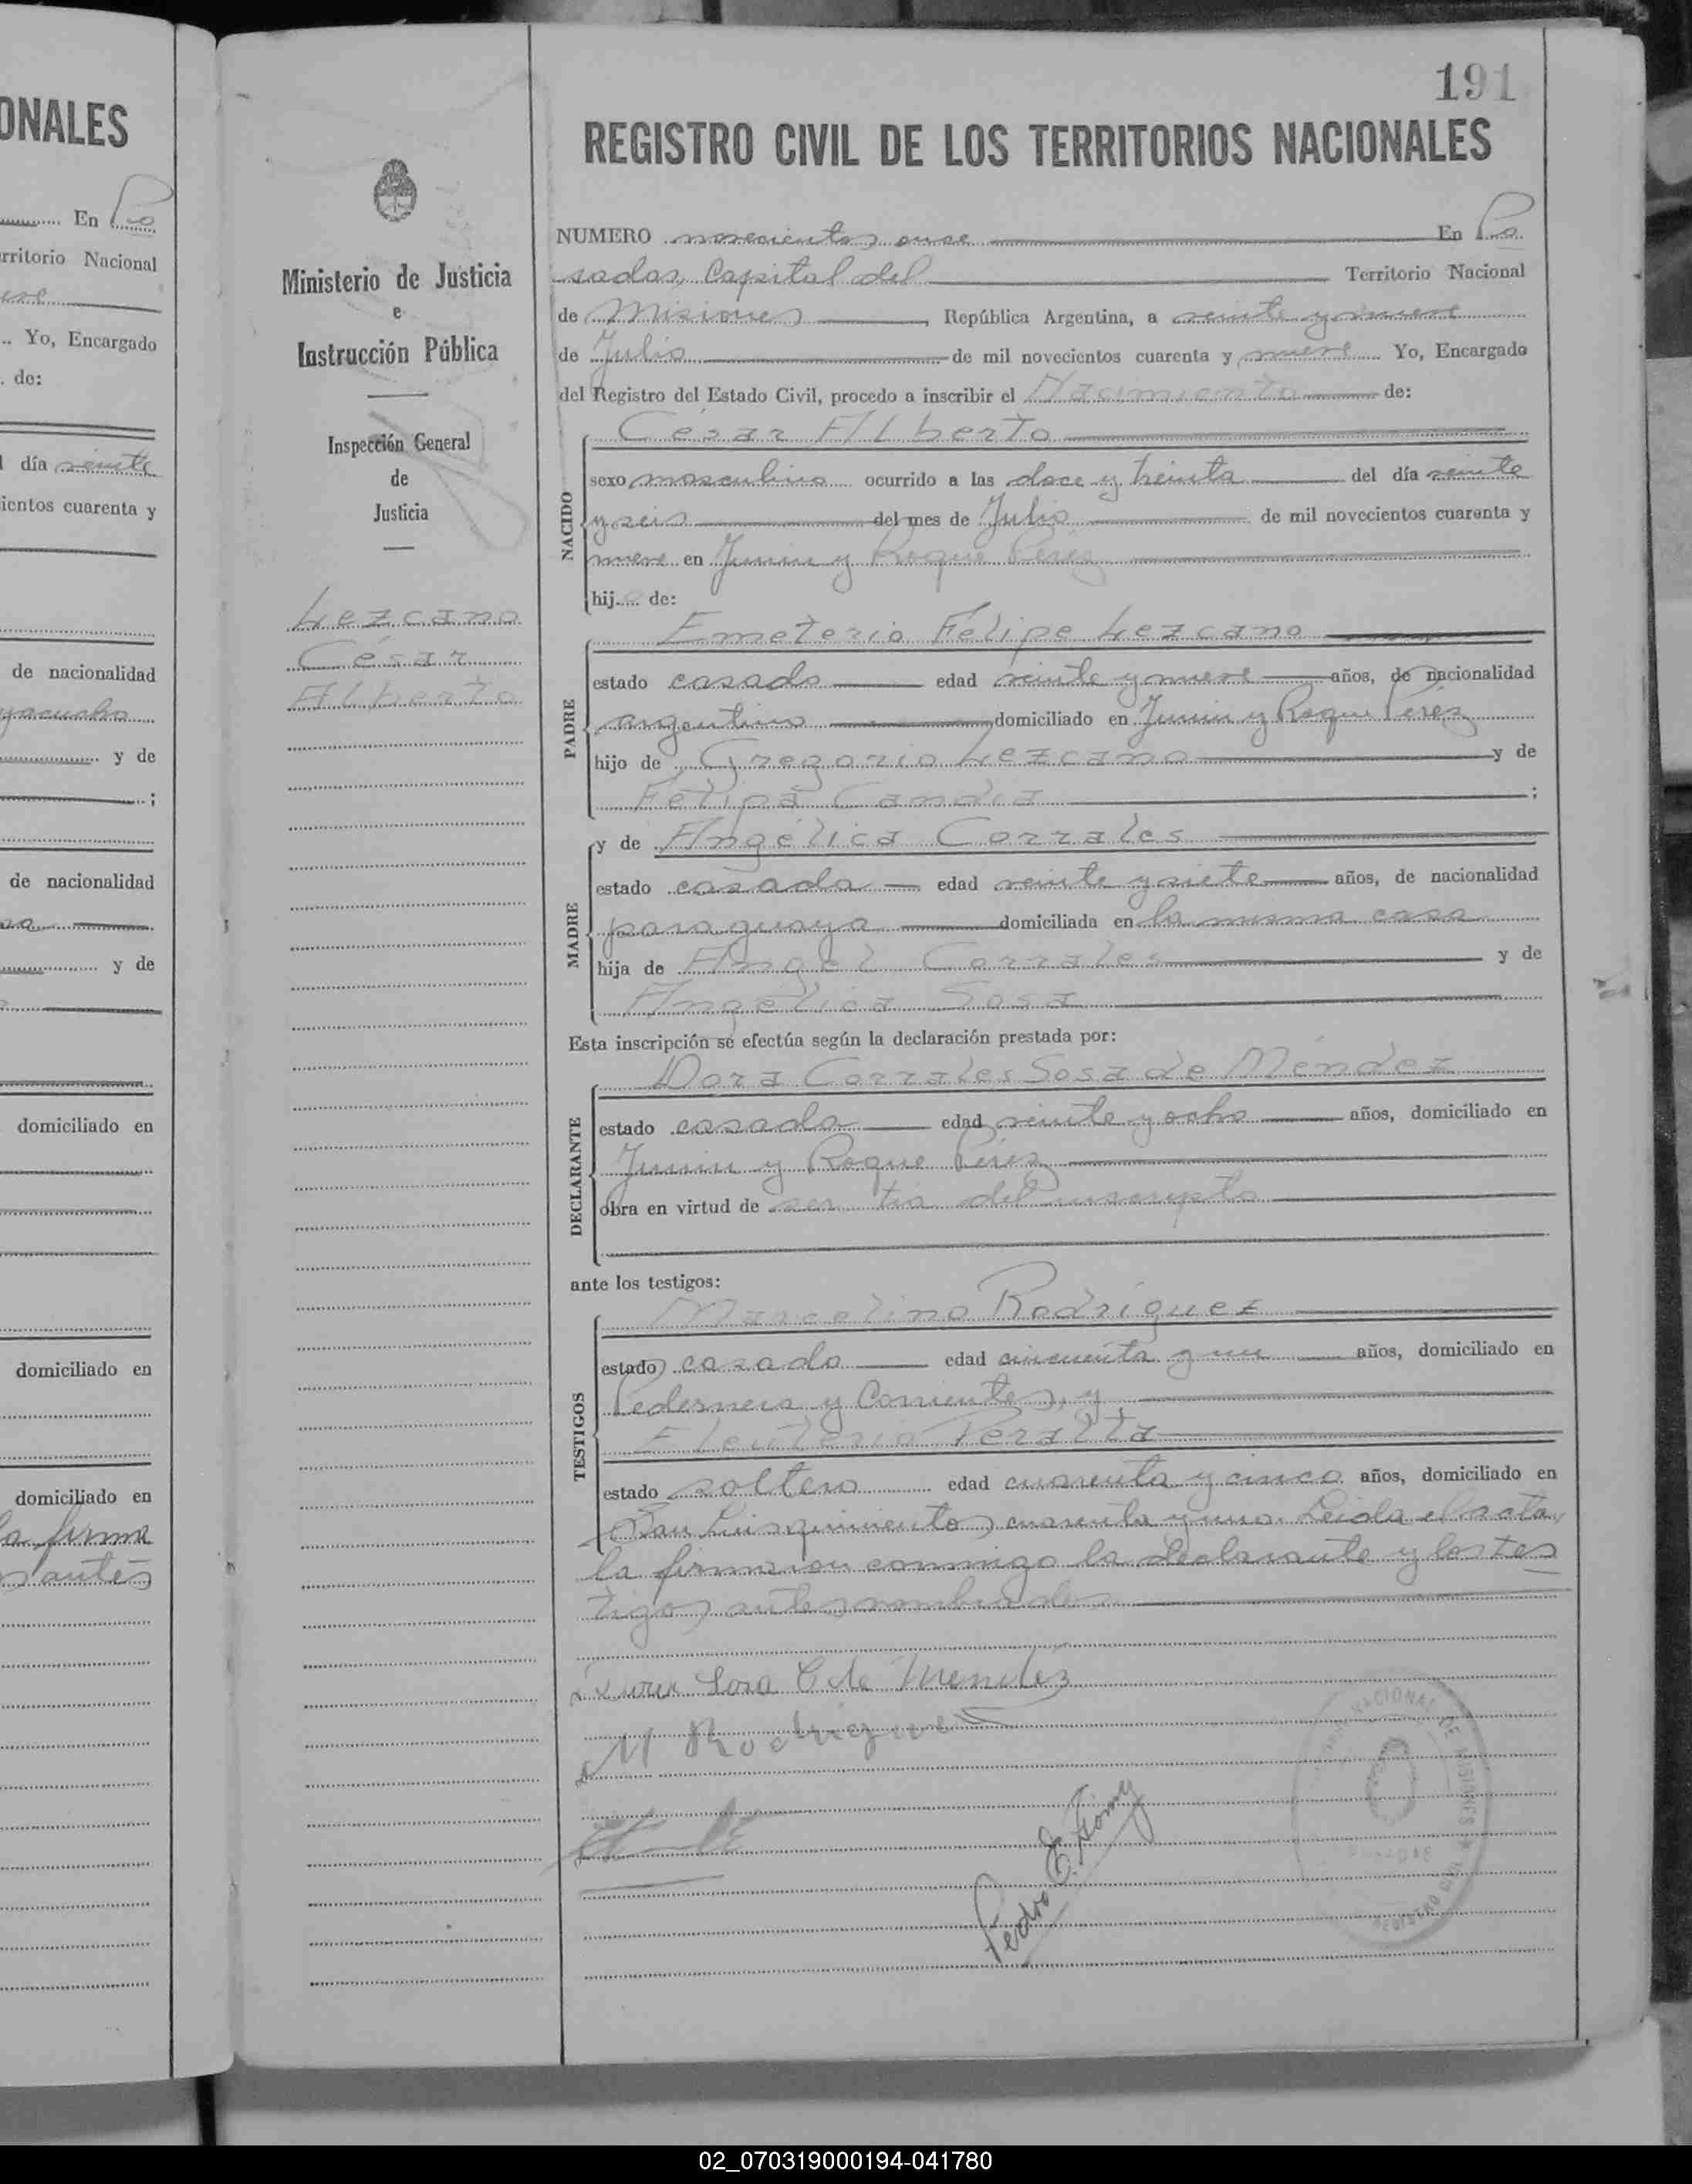 ONALES
En Po
rritorio Nacional
Yo, Encargado
de:
día veinte
ientos cuarenta y
de nacionalidad
yacucho
y de
;
de nacionalidad
y de
domiciliado en
domiciliado en
domiciliado en
la firma
santes
Ministerio de Justicia
e
Instrucción Pública
Inspección General
de
Justicia
Lezcano
César
Alberto
191
REGISTRO CIVIL DE LOS TERRITORIOS NACIONALES
NUMERO novecientos once En Po
sadas, Capital del Territorio Nacional
de Misiones, República Argentina, a veinte y nueve
de Julio de mil novecientos cuarenta y nueve Yo, Encargado
del Registro del Estado Civil, procedo a inscribir el Nacimiento de:
César Alberto
NACIDO
sexo masculino ocurrido a las doce y treinta del día veinte
y seis del mes de Julio de mil novecientos cuarenta y
nueve en Junin y Roque Pérez
hijo de:
Emeterio Felipe Lezcano
PADRE
estado casado edad veinte y nueve años, de nacionalidad
argentino domiciliado en Junin y Roque Pérez
hijo de Gregorio Lezcano y de
Felipa Candia ;
y de Angélica Corrales
MADRE
estado casada edad veinte y siete años, de nacionalidad
paraguaya domiciliada en la misma casa
hija de Angel Corrales y de
Angélica Sosa
Esta inscripción se efectúa según la declaración prestada por:
Dora Corrales Sosa de Méndez
DECLARANTE
estado casada edad veinte y ocho años, domiciliado en
Junin y Roque Pérez
obra en virtud de ser tia del inscripto
ante los testigos:
Marcelino Rodríguez
TESTIGOS
estado casado edad cincuenta y un años, domiciliado en
Pedernera y Corrientes, y
Eleuterio Peralta
estado soltero edad cuarenta y cinco años, domiciliado en
San Luis quinientos cuarenta y uno. Leida el acta,
la firmaron conmigo la declarante y los tes
tigos antes nombrados
Sosa C de Mendez
M Rodriguez
Pedro E.
NACIONAL DE MISIONES
REGISTRO CIVIL
02_070319000194-041780